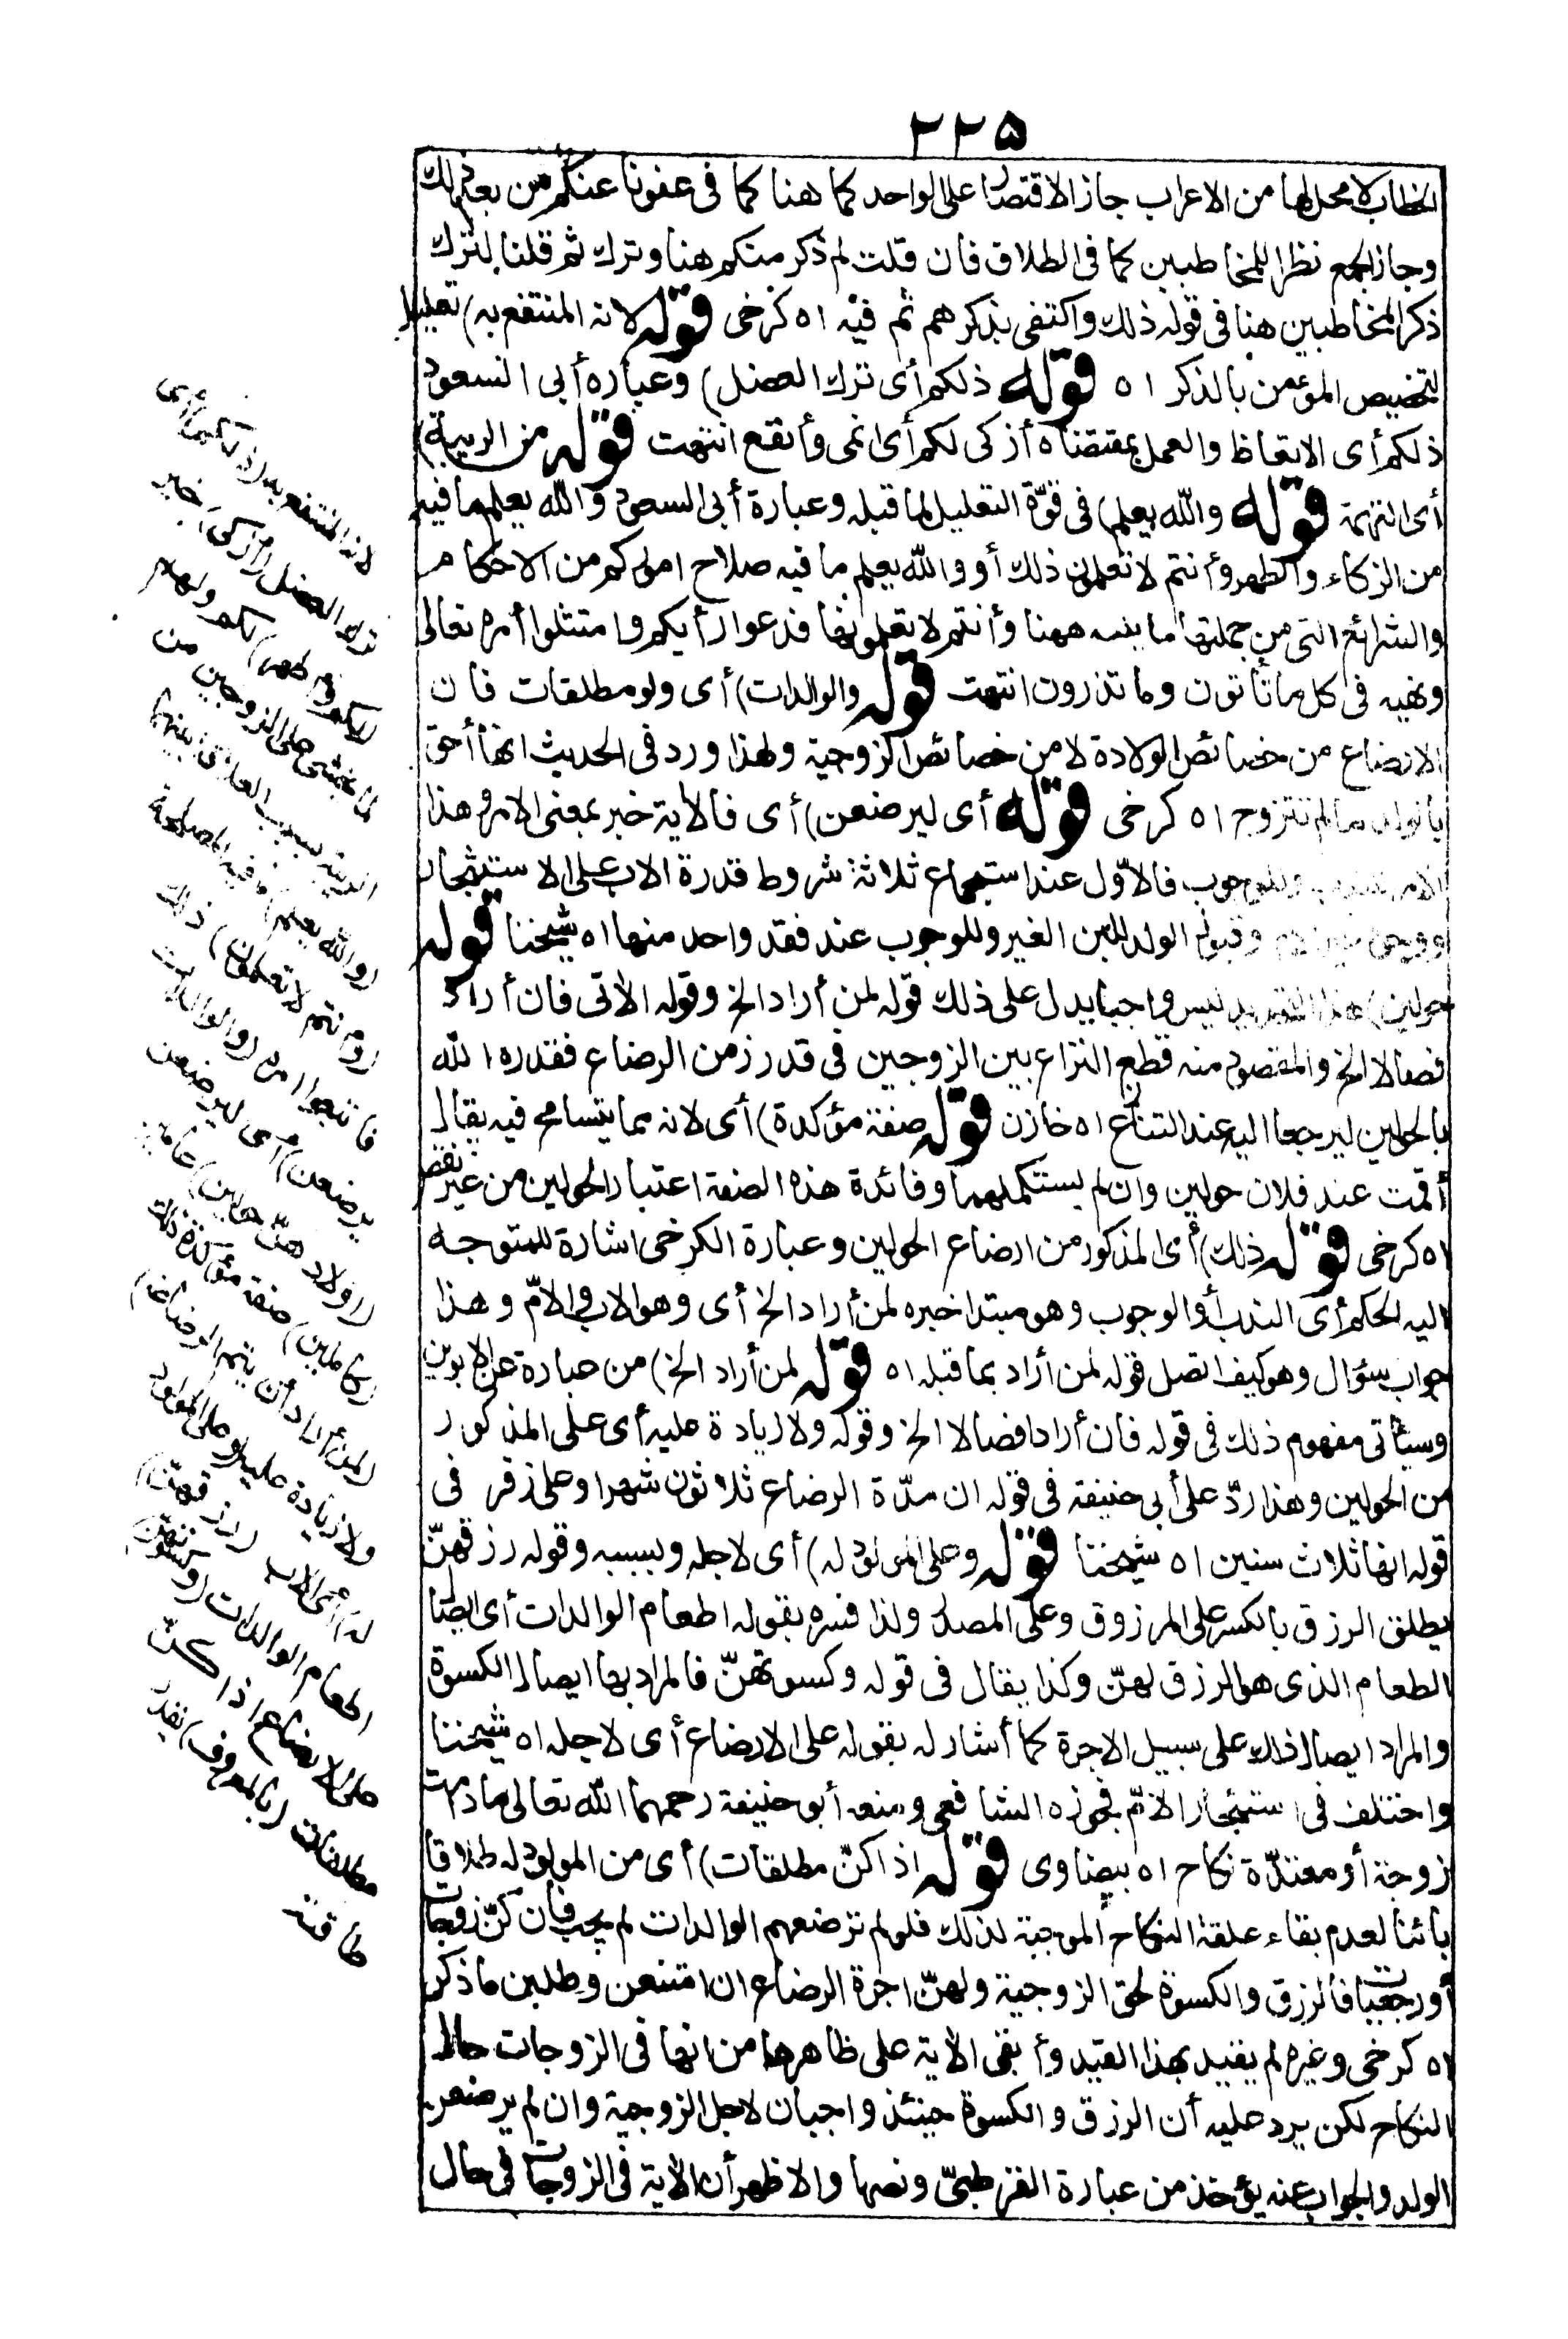 ٢٢٥
الخطاب لا محل لها من الاعراب جاز الاقتصار على الواحد كما هنا كما فى عفونا عنكم من بعد ذلك
وجاز الجمع نظرا للمخاطبين كما فى الطلاق فان قلت لم ذكر منكم هنا وترك ثم قلنا لترك
ذكر المخاطبين هنا فى قوله ذلك واكتفى بذكرهم ثم فيه اه كرخى قوله لانه المنتفع به) تعليل
لتخصيص المؤمن بالذكر اه قوله ذلكم أى ترك العضل) وعبارة أبى السعود
ذلكم أى الاتعاظ والعمل بمقتضاه أزكى لكم أى انمى وأنفع انتهت قوله من الريبة)
أى التهمة قوله والله يعلم) فى قوّة التعليل لما قبله وعبارة أبى السعود والله يعلم ما فيه
من الزكاء والطهر وأنتم لا تعلمون ذلك أو والله يعلم ما فيه صلاح اموركم من الاحكام
والشرائع التى من جملتها ما بينه ههنا وأنتم لا تعلمونها فدعوا رأيكم وامتثلوا أمره تعالى
ونهيه فى كل ما تأتون وما تذرون انتهت قوله والوالدات) أى ولو مطلقات فان
الارضاع من خصائص الولادة لا من خصائص الزوجية ولهذا ورد فى الحديث انها أحق
بالولد ما لم تتزوج اه كرخى قوله أى ليرضعن) أى فالأية خبر بمعنى الامر وهذا
الامر للندب وللوجوب فالاوّل عند استجماع ثلاثة شروط قدرة الاب على الاستئجار
ووجود غير الام وقبول الولد للبن الغير وللوجوب عند فقد واحد منها اه شيخنا قوله
حولين) هذا التحديد ليس واجبا يدل على ذلك قوله لمن أراد الخ وقوله الأتى فان أرادا
فصالا الخ والمقصود منه قطع النزاع بين الزوجين فى قدر زمن الرضاع فقدره الله
بالحولين ليرجعا اليه عند التنازع اه خازن قوله صفة مؤكدة) أى لانه مما يتسامح فيه يقال
أقمت عند فلان حولين وان لم يستكملهما وفائدة هذه الصفة اعتبار الحولين من غير نقص
اه كرخى قوله ذلك) أى المذكور من ارضاع الحولين وعبارة الكرخى اشارة للمتوجه
اليه الحكم أى الندب أو الوجوب وهو مبتدا خبره لمن أراد الخ أى وهو الاب والامّ وهذا
جواب سؤال وهو كيف اتصل قوله لمن أراد بما قبله اه قوله لمن أراد الخ) من عبارة عن الابوين
وسيأتى مفهوم ذلك فى قوله فان أرادا فصالا الخ وقوله ولا زيادة عليه أى على المذكور
من الحولين وهذا ردّ على أبى حنيفة فى قوله ان مدّة الرضاع ثلاثون شهرا وعلى زفر فى
قوله انها ثلاث سنين اه شيخنا قوله وعلى المولود له) أى لاجله وبسببه وقوله رزقهنّ
يطلق الرزق بالكسر على المرزوق وعلى المصدر ولذا فسره بقوله اطعام الوالدات أى ايصال
الطعام الذى هو الرزق لهنّ وكذا يقال فى قوله وكسوتهنّ فالمراد بها ايصال الكسوة
والمراد ايصال ذلك على سبيل الاجرة كما أشار له بقوله على الارضاع أى لاجله اه شيخنا
واختلف فى استئجار الامّ فجوزه الشافعى ومنعه أبو حنيفة رحمهما الله تعالى ما دامت
زوجة أو معتدّة نكاح اه بيضاوى قوله اذا كنّ مطلقات) أى من المولود له طلاقا
بائنا لعدم بقاء علقة النكاح الموجبة لذلك فلو لم ترضعهم الوالدات لم يجب فان كنّ زوجات
أو رجعيات فالرزق والكسوة لحق الزوجية ولهنّ اجرة الرضاع ان امتنعن وطلبن ما ذكر
اه كرخى وغيره لم يقيد بهذا القيد وأبقى الأية على ظاهرها من انها فى الزوجات حال
النكاح لكن يرد عليه أن الرزق والكسوة حينئذ واجبان لاجل الزوجية وان لم يرضعن
الولد والجواب عنه يؤخذ من عبارة القرطبىّ ونصها والاظهر أن الأية فى الزوجات فى حال
لانه المنتفع به (ذلكم) أى
ترك العضل (أزكى) خير
(لكم وأطهر) لكم ولهم
لما يخشى على الزوجين من
الريبة بسبب العلاقة بينهما
(والله يعلم) ما فيه المصلحة
(وأنتم لا تعلمون) ذلك
فاتبعوا أمره (والوالدات
يرضعن) أى ليرضعن
(أولادهنّ حولين) عامين
(كاملين) صفة مؤكدة ذلك
(لمن أراد أن يتم الرضاعة)
ولا زيادة عليه (وعلى المولود
له) أى الاب (رزقهنّ)
اطعام الوالدات (وكسوتهنّ)
على الارضاع اذا كنّ
مطلقات (بالمعروف) بقدر
طاقته